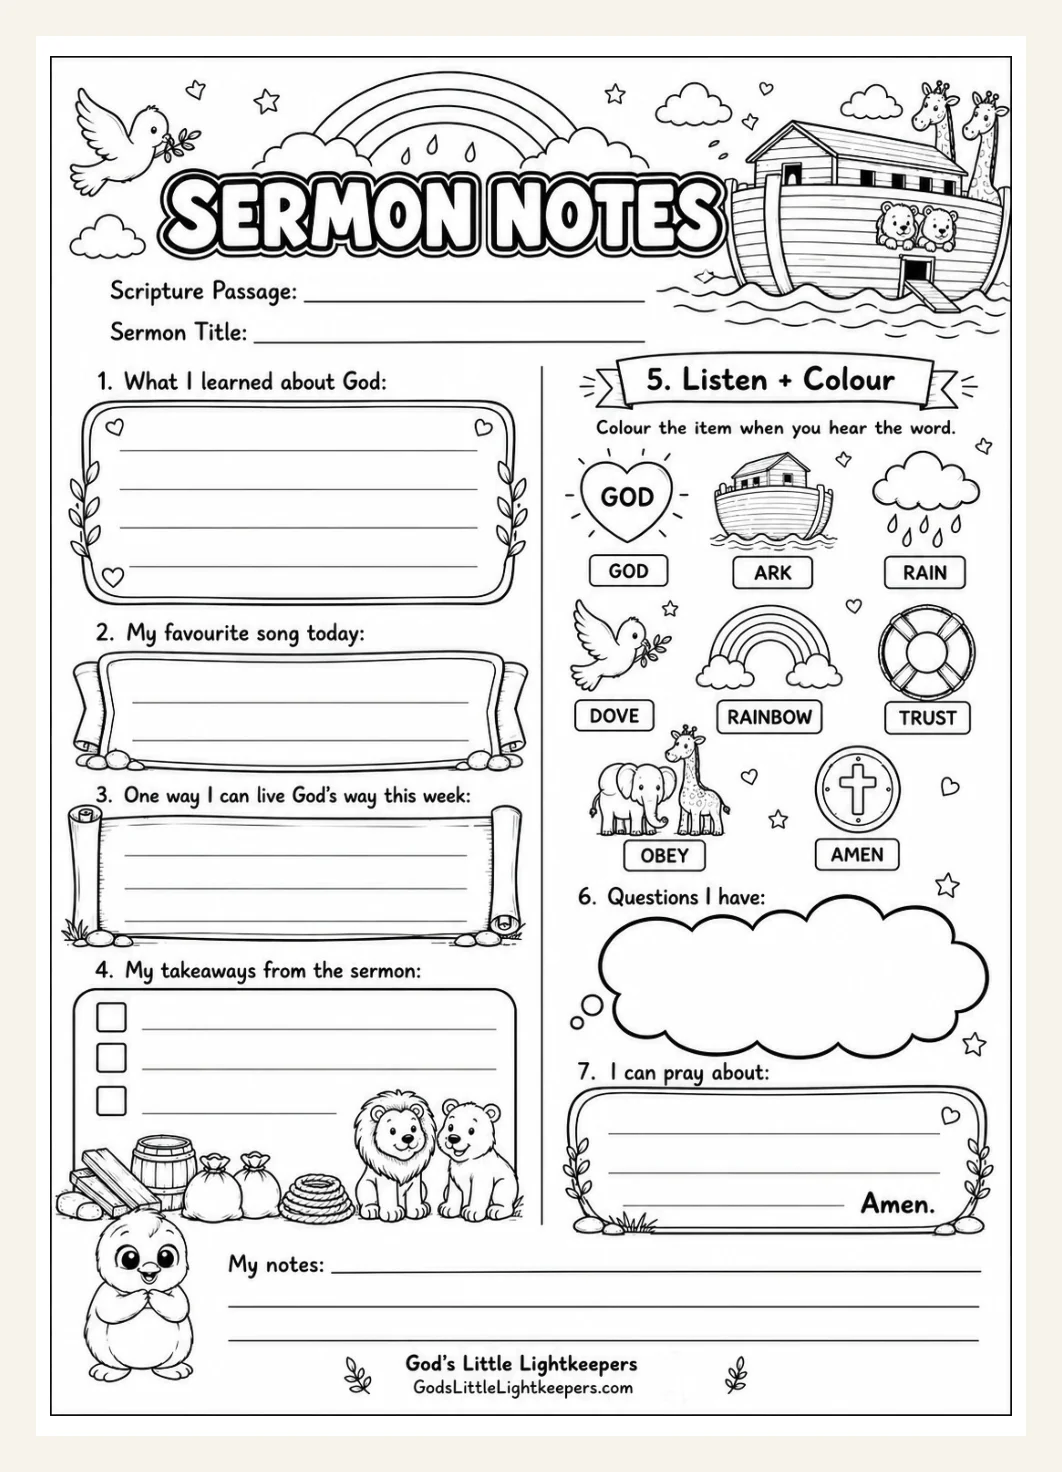 SERMON NOTES
Scripture Passage:
Sermon Title:
1. What I learned about God:
2. My favourite song today:
3. One way I can live God's way this week:
4. My takeaways from the sermon:
5. Listen + Colour
Colour the item when you hear the word.
GOD
GOD
ARK
RAIN
DOVE
RAINBOW
TRUST
OBEY
AMEN
6. Questions I have:
7. I can pray about:
Amen.
My notes:
God's Little Lightkeepers
GodsLittleLightkeepers.com